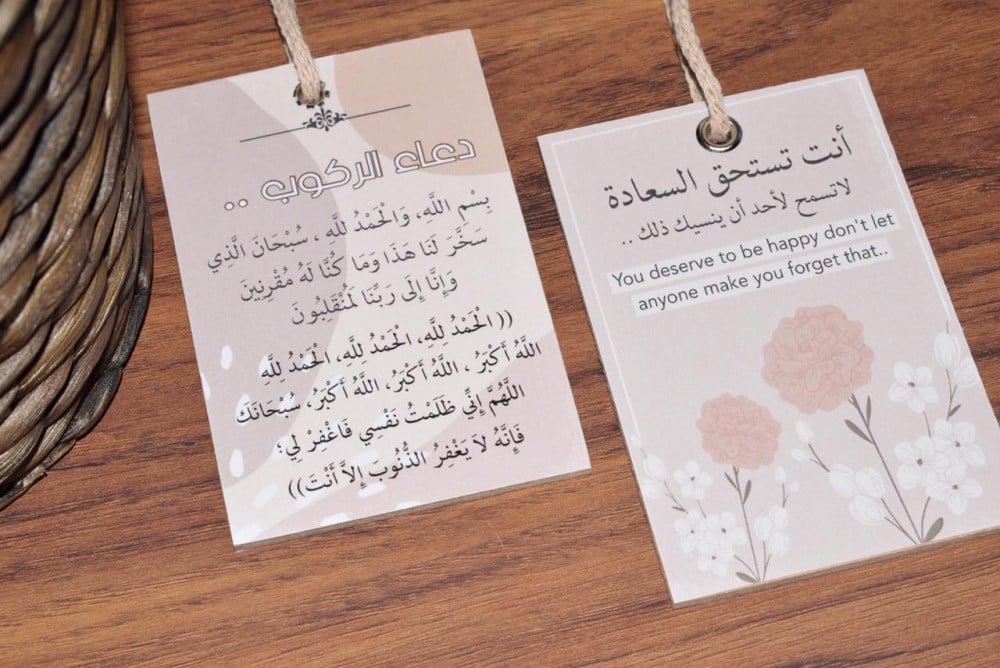 دعاء الركوب ..
بِسْمِ اللَّهِ، وَالْحَمْدُ للَّهِ ، سُبْحَانَ الَّذِي
سَخَّرَ لَنَا هَذَا وَمَا كُنَّا لَهُ مُقْرِنِينَ
وَإِنَّا إِلَى رَبِّنَا لَمُنْقَلِبُونَ
(( الْحَمْدُ للَّهِ، الْحَمْدُ للَّهِ، الْحَمْدُ لِلَّهِ
اللَّهُ أَكْبَرُ ، اللَّهُ أَكْبَرُ، اللَّهُ أَكْبَرُ، سُبْحَانَكَ
اللَّهُمَّ إِنِّي ظَلَمْتُ نَفْسِي فَاغْفِرْ لِي؛
فَإِنَّهُ لاَ يَغْفِرُ الذُّنُوبَ إِلاَّ أَنْتَ))
أنت تستحق السعادة
لاتسمح لأحد أن ينسيك ذلك ..
You deserve to be happy don't let
anyone make you forget that..